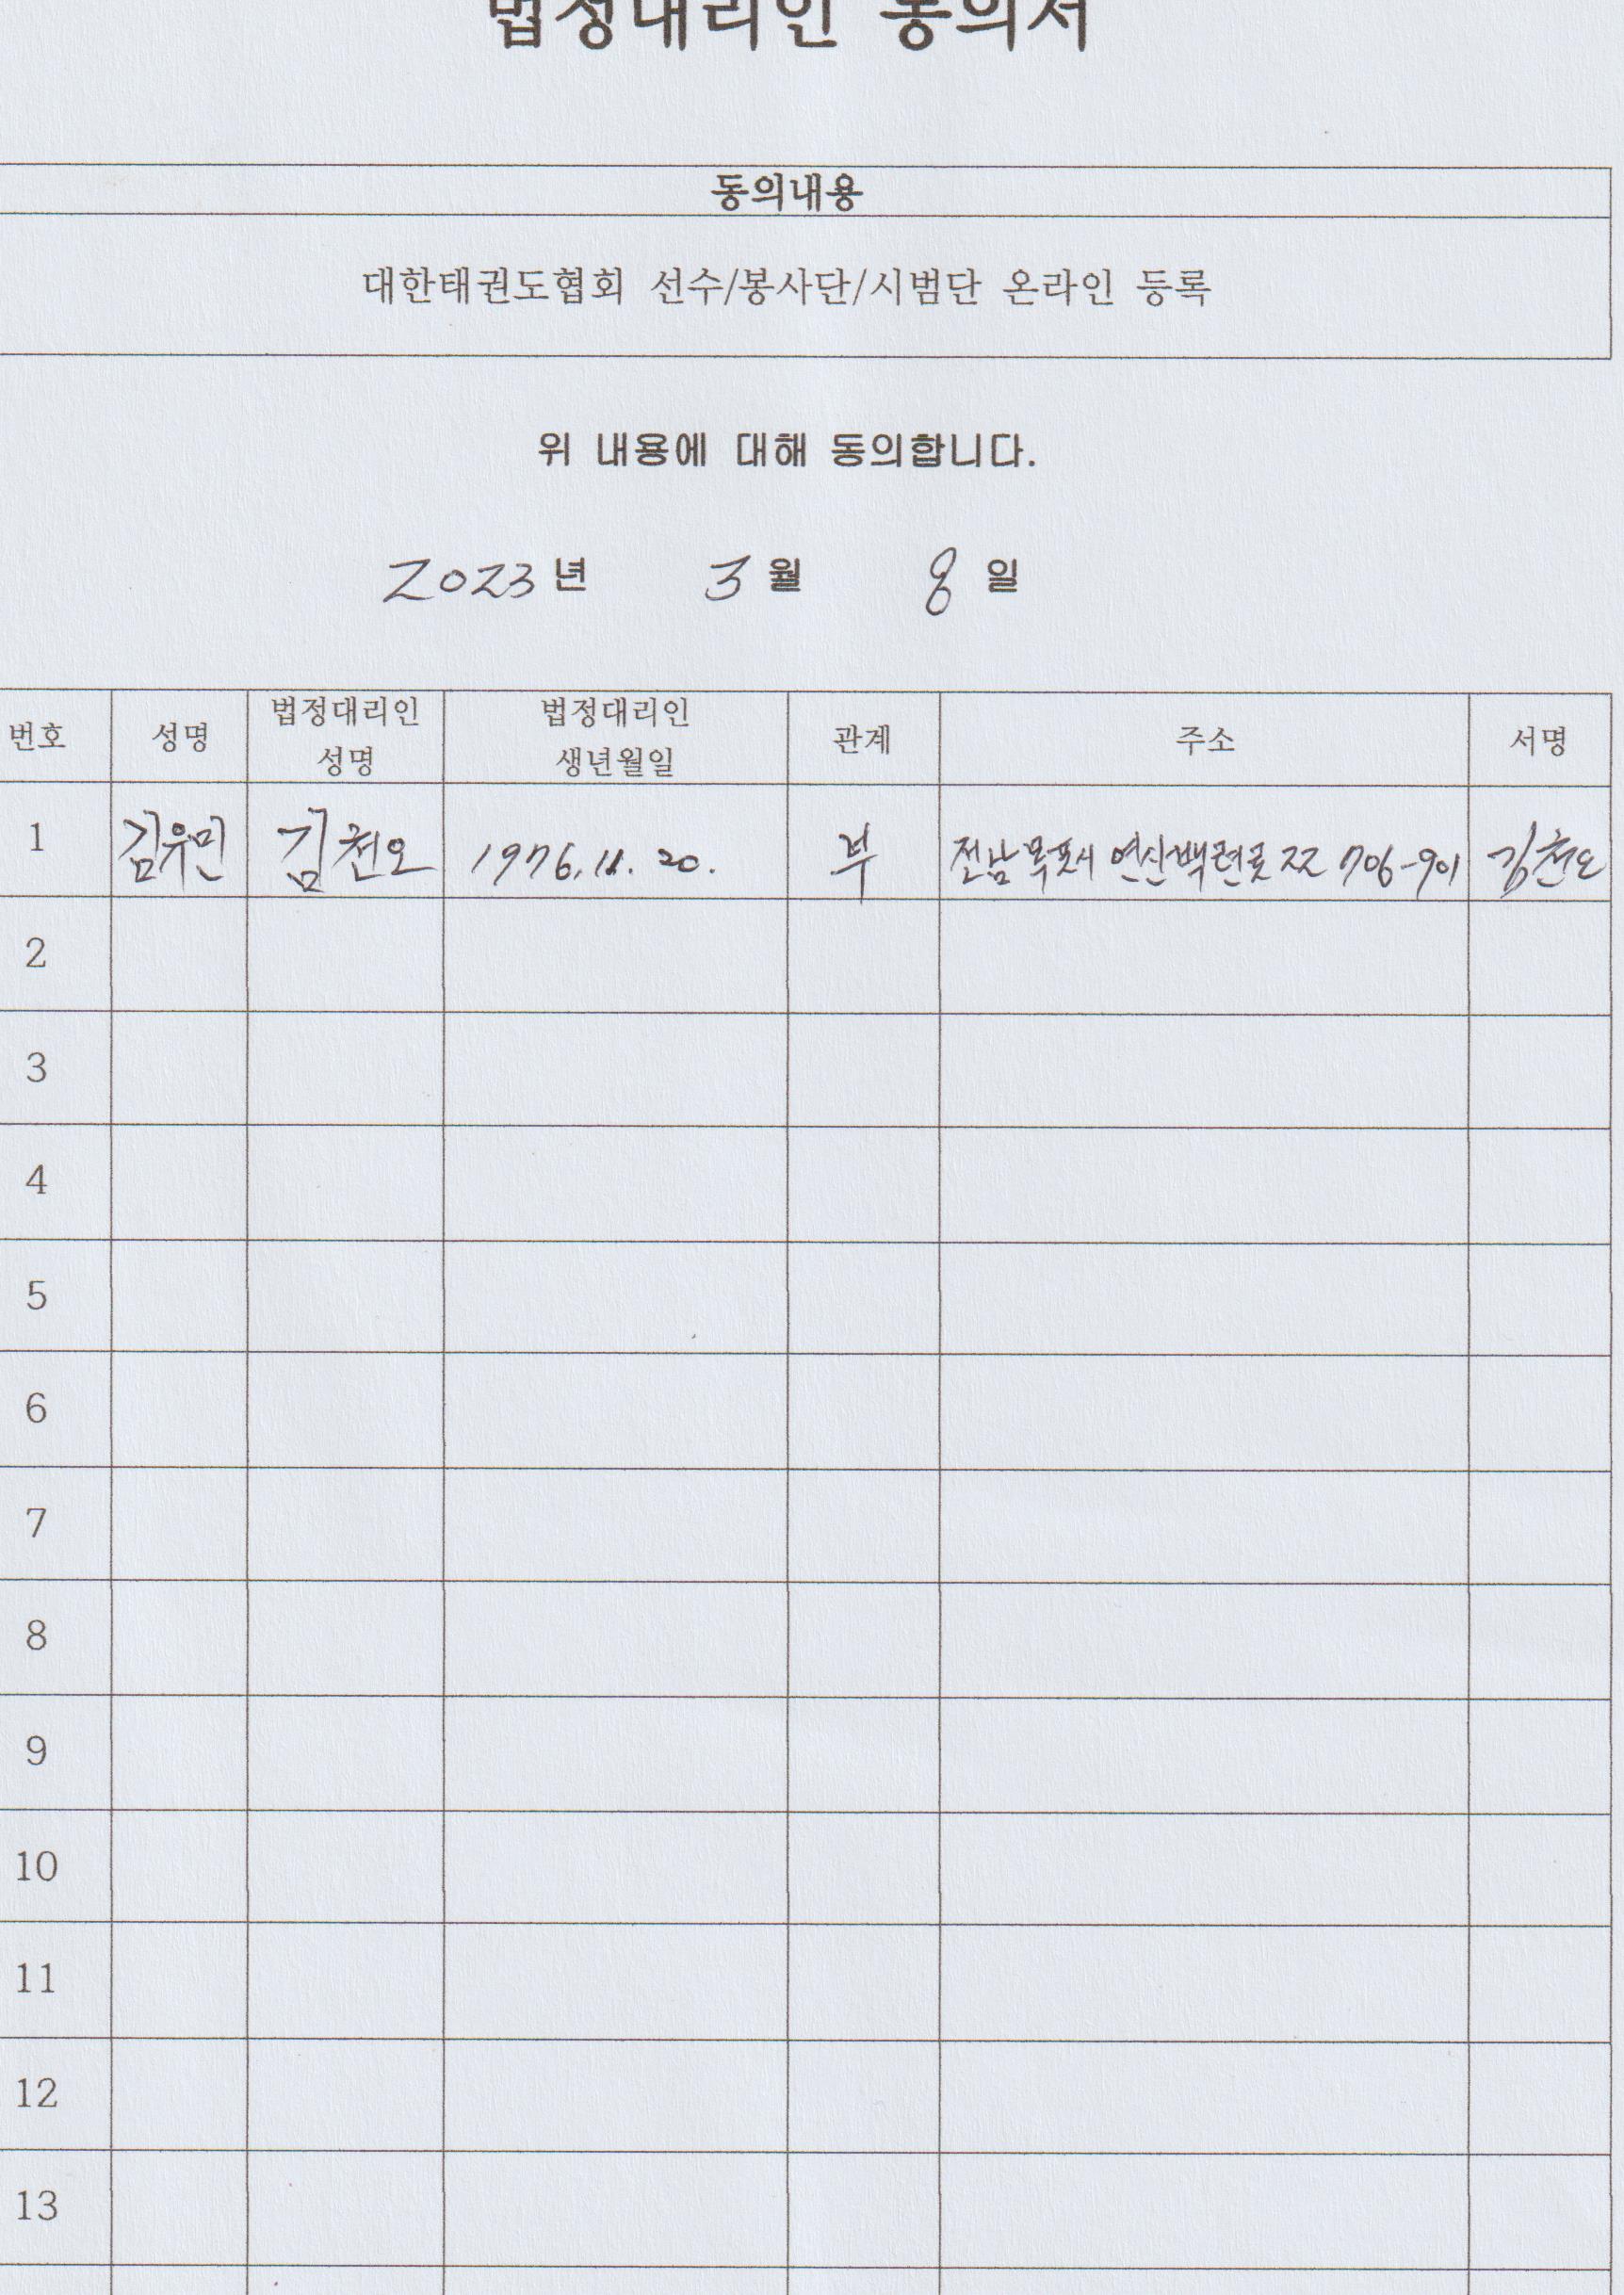 법정대리인 동의서
동의내용
대한태권도협회 선수/봉사단/시범단 온라인 등록
위 내용에 대해 동의합니다.
2023년 3월 8일
번호 성명 법정대리인 성명 법정대리인 생년월일 관계 주소 서명
1 김유민 김천오 1976. 11. 20. 부 전남 목포시 연산백련로 22 706-901 김천오
2
3
4
5
6
7
8
9
10
11
12
13